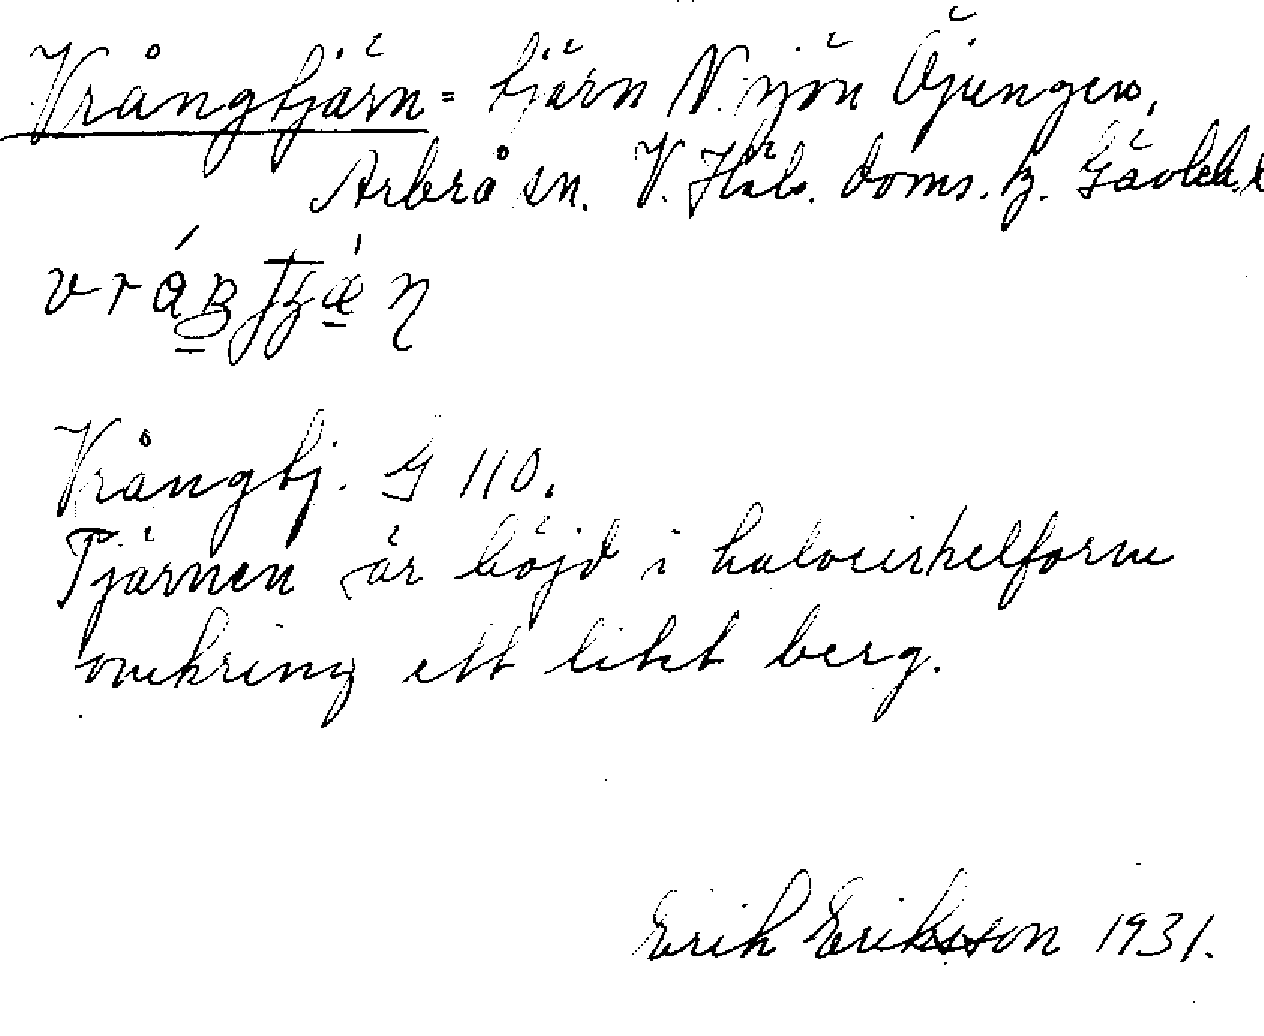 Vrångtjärn = tjärn N. sjön Öjungen,
Arbrå sn. V. Häls. doms. h. Gävleb. l
Vrångtj. G 110.
Tjärnen är böjd i halvcirkelform
omkring ett litet berg.
Erik Eriksson 1931.